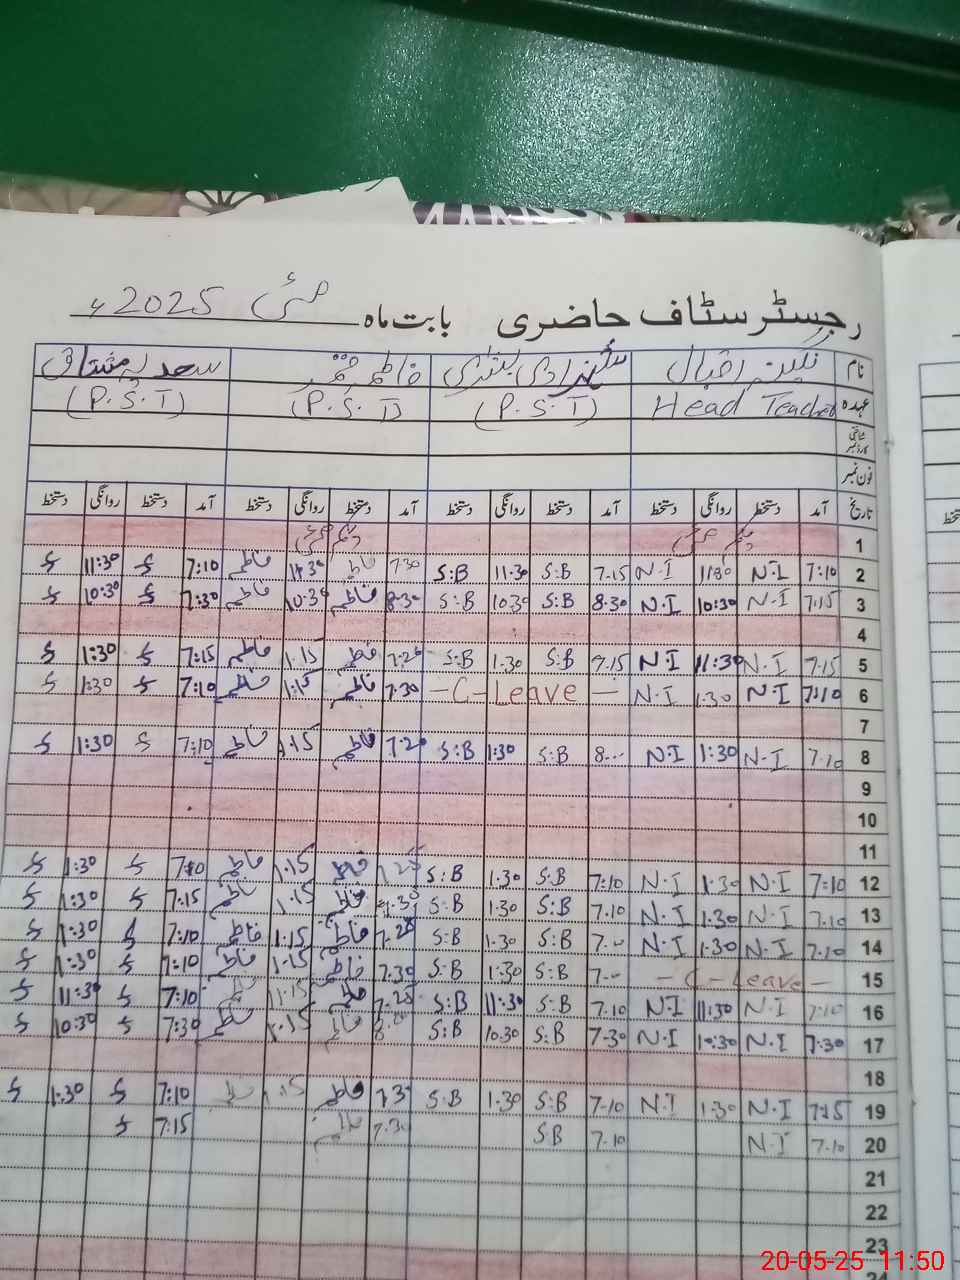 رجسٹر سٹاف حاضری بابت ماہ مئی 2025ء
نام نگینہ اقبال شہزادی بشریٰ فاطمہ قمر سعدیہ مشتاق
عہدہ Head Teacher (P.S.T) (P.S.T) (P.S.T)
شناختی کارڈ نمبر
فون نمبر
تاریخ آمد دستخط روانگی دستخط آمد دستخط روانگی دستخط آمد دستخط روانگی دستخط آمد دستخط روانگی دستخط
1 یکم مئی یکم مئی
2 7:10 N.I 11:30 N.I 7.15 S:B 11.30 S:B 7.30 فاطمہ 11.30 فاطمہ 7:10 11:30
3 7.15 N.I 10:30 N.I 8.30 S:B 10.30 S:B 8.30 فاطمہ 10.30 فاطمہ 7:30 10:30
4
5 7.15 N.I 11:30 N.I 7.15 S:B 1.30 S:B 7.20 فاطمہ 1.15 فاطمہ 7:15 1:30
6 7:10 N.I 1.30 N.I - C-Leave - 7.30 فاطمہ 1:15 فاطمہ 7:10 1:30
7
8 7.10 N.I 1:30 N.I 8... S:B 1:30 S:B 7.20 فاطمہ 1.15 فاطمہ 7:10 1:30
9
10
11
12 7:10 N.I 1.30 N.I 7:10 S:B 1.30 S:B 7.25 فاطمہ 1.15 فاطمہ 7:10 1:30
13 7.10 N.I 1.30 N.I 7.10 S:B 1.30 S:B فاطمہ 1.15 فاطمہ 7:15 1:30
14 7.10 N.I 1.30 N.I 7.00 S:B 1.30 S:B 7.20 فاطمہ 1.15 فاطمہ 7:10 1:30
15 - C-Leave - 7.00 S:B 1:30 S:B 7.30 فاطمہ 1.15 فاطمہ 7:10 1:30
16 7:10 N.I 11:30 N.I 7.10 S:B 11:30 S:B 7.25 فاطمہ 11:15 7:10 11:30
17 7:30 N.I 10:30 N.I 7-30 S:B 10.30 S:B 8.20 فاطمہ 1.15 فاطمہ 7:30 10:30
18
19 7:15 N.I 1.30 N.I 7-10 S:B 1.30 S:B 7.30 فاطمہ 1:15 7:10 1.30
20 7.10 N.I 7.10 S:B 7.30 فاطمہ 7:15
21
22
23
24
20-05-25 11:50